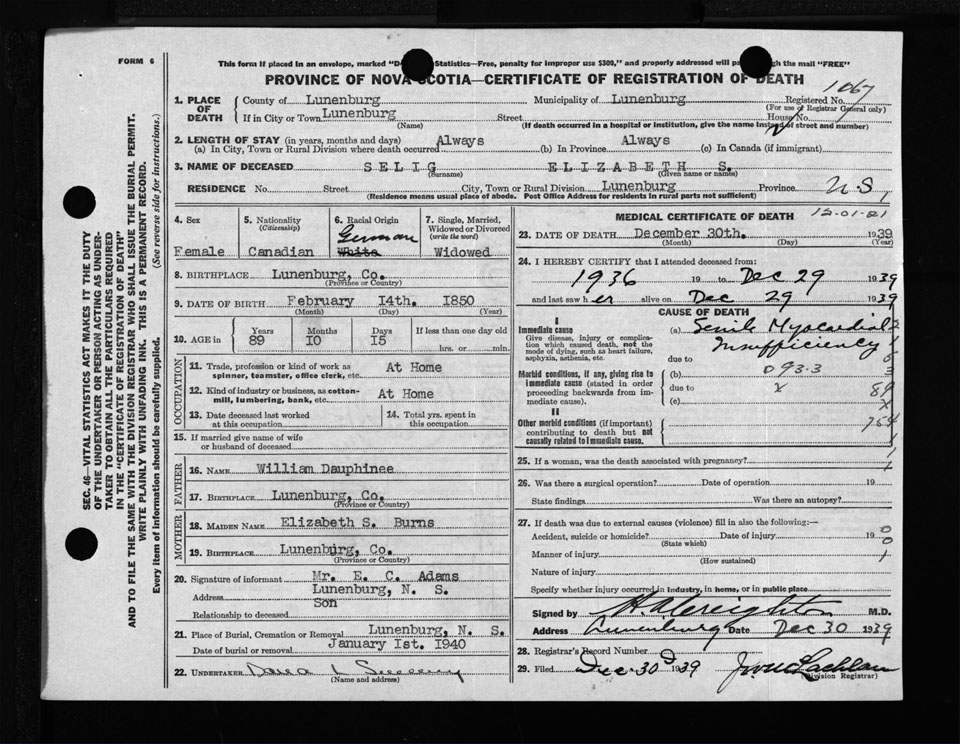 FORM 6
This form if placed in an envelope, marked "D Statistics—Free, penalty for improper use $300," and properly addressed will pa through the mail "FREE"
PROVINCE OF NOVA SCOTIA—CERTIFICATE OF REGISTRATION OF DEATH
1067
1. PLACE OF DEATH
County of Lunenburg Municipality of Lunenburg Registered No.
(For use of Registrar General only)
If in City or Town Lunenburg Street House No.
(Name) (If death occurred in a hospital or institution, give the name instead of street and number)
2. LENGTH OF STAY (in years, months and days)
(a) In City, Town or Rural Division where death occurred Always (b) In Province Always (c) In Canada (if immigrant)
3. NAME OF DECEASED SELIG ELIZABETH S.
(Surname) (Given name or names)
RESIDENCE No. Street City, Town or Rural Division Lunenburg Province N.S.
(Residence means usual place of abode. Post Office Address for residents in rural parts not sufficient)
4. Sex
Female
5. Nationality
(Citizenship)
Canadian
6. Racial Origin
German
White
7. Single, Married, Widowed or Divorced
(write the word)
Widowed
8. BIRTHPLACE Lunenburg, Co.
(Province or Country)
9. DATE OF BIRTH February 14th. 1850
(Month) (Day) (Year)
10. AGE in
Years Months Days If less than one day old
89 10 15 hrs. or min.
OCCUPATION
11. Trade, profession or kind of work as spinner, teamster, office clerk, etc. At Home
12. Kind of industry or business, as cotton-mill, lumbering, bank, etc. At Home
13. Date deceased last worked at this occupation
14. Total yrs. spent in this occupation
15. If married give name of wife or husband of deceased
FATHER
16. NAME William Dauphinee
17. BIRTHPLACE Lunenburg, Co.
(Province or Country)
MOTHER
18. MAIDEN NAME Elizabeth S. Burns
19. BIRTHPLACE Lunenburg, Co.
(Province or Country)
20. Signature of informant Mr. E. C. Adams
Address Lunenburg, N. S.
Relationship to deceased Son
21. Place of Burial, Cremation or Removal Lunenburg, N. S.
Date of burial or removal January 1st. 1940
22. UNDERTAKER
(Name and address)
MEDICAL CERTIFICATE OF DEATH 12-01-21
23. DATE OF DEATH December 30th. 1939
(Month) (Day) (Year)
24. I HEREBY CERTIFY that I attended deceased from:
1936 19 to Dec 29 1939
and last saw her alive on Dec 29 1939
CAUSE OF DEATH
I
Immediate cause
Give disease, injury or complication which caused death, not the mode of dying, such as heart failure, asphyxia, asthenia, etc.
(a) Senile Myocardial
Insufficiency
due to
Morbid conditions, if any, giving rise to immediate cause (stated in order proceeding backwards from immediate cause).
(b) 093.3
due to x
(c)
II
Other morbid conditions (if important) contributing to death but not causally related to immediate cause.
25. If a woman, was the death associated with pregnancy?
26. Was there a surgical operation? Date of operation 19
State findings Was there an autopsy?
27. If death was due to external causes (violence) fill in also the following:—
Accident, suicide or homicide? Date of injury 19
(State which)
Manner of injury
(How sustained)
Nature of injury
Specify whether injury occurred in industry, in home, or in public place
Signed by Creighton M.D.
Address Lunenburg Date Dec 30 1939
28. Registrar's Record Number
29. Filed Dec 30 1939
(Division Registrar)
SEC. 46—VITAL STATISTICS ACT MAKES IT THE DUTY
OF THE UNDERTAKER OR PERSON ACTING AS UNDER-
TAKER TO OBTAIN ALL THE PARTICULARS REQUIRED
IN THE "CERTIFICATE OF REGISTRATION OF DEATH"
AND TO FILE THE SAME WITH THE DIVISION REGISTRAR WHO SHALL ISSUE THE BURIAL PERMIT.
WRITE PLAINLY WITH UNFADING INK. THIS IS A PERMANENT RECORD.
Every item of information should be carefully supplied. (See reverse side for instructions.)